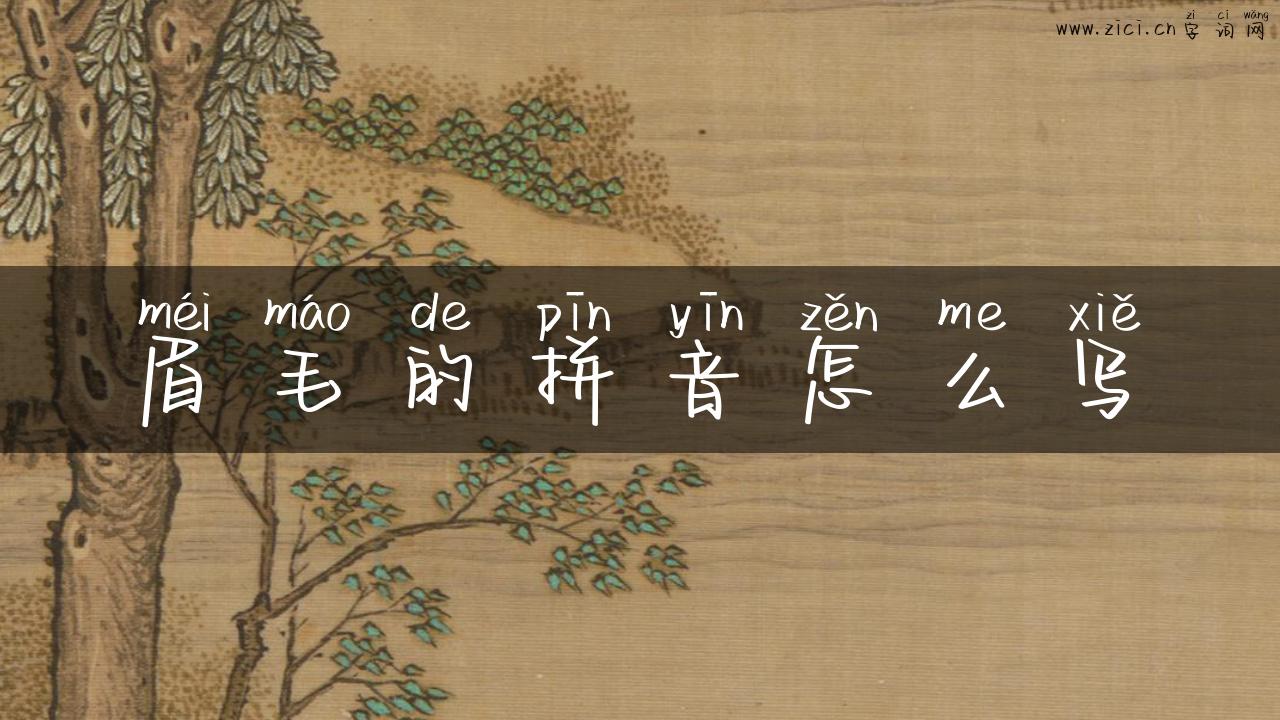 zì cí wǎng
www.zici.cn 字词网
méi máo de pīn yīn zěn me xiě
眉毛的拼音怎么写